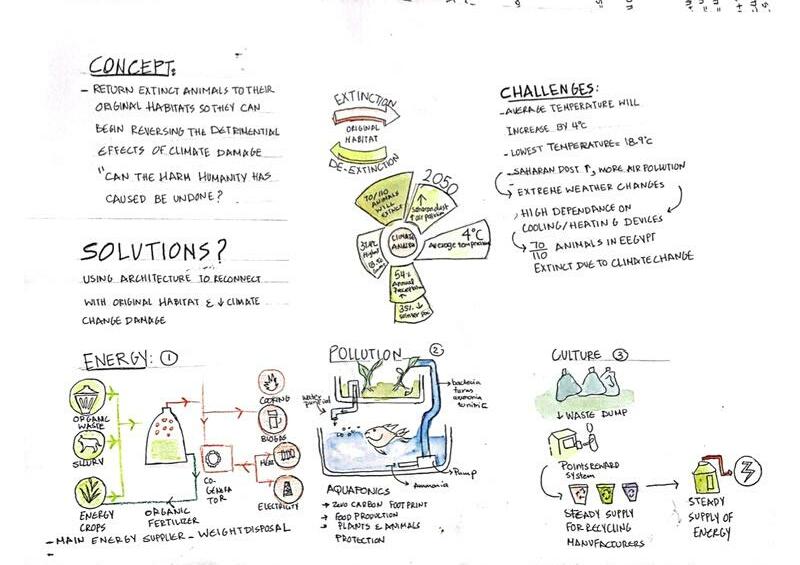 CONCEPT:
- RETURN EXTINCT ANIMALS TO THEIR
ORIGINAL HABITATS SO THEY CAN
BEGIN REVERSING THE DETRIMENTIAL
EFFECTS OF CLIMATE DAMAGE
"CAN THE HARM HUMANITY HAS
CAUSED BE UNDONE?
SOLUTIONS?
USING ARCHITECTURE TO RECONNECT
WITH ORIGINAL HABITAT & ↓ CLIMATE
CHANGE DAMAGE
EXTINCTION
ORIGINAL
HABITAT
DE-EXTINCTION
2050
70/110
ANIMALS
WILL
EXTINCT
↑
Saharan dust
↑ air pollution
4°C
Average temperature
CLIMATE
54%
Annual
↑
35% ↓
CHALLENGES:
- AVERAGE TEMPERATURE WILL
INCREASE BY 4°C
- LOWEST TEMPERATURE = 18.9°C
- SAHARAN DUST ↑, MORE AIR POLLUTION
EXTREME WEATHER CHANGES
HIGH DEPENDANCE ON
COOLING/HEATING DEVICES
70/110 ANIMALS IN EEGYPT
EXTINCT DUE TO CLIMATE CHANGE
ENERGY: 1
ORGANIC
WASTE
SLURY
ENERGY
CROPS
ORGANIC
FERTILIZER
CO-
GENERA
TOR
COOKING
BIOGAS
HEAT
ELECTRICITY
- MAIN ENERGY SUPPLIER - WEIGHT DISPOSAL
POLLUTION 2
water
purified
bacteria
turns
ammonia
to nitric
Pump
Ammonia
AQUAPONICS
→ ZERO CARBON FOOTPRINT
→ FOOD PRODUCTION
→ PLANTS & ANIMALS
PROTECTION
CULTURE 3
↓ WASTE DUMP
Points reward
system
STEADY SUPPLY
FOR RECYCLING
MANUFACTURERS
STEADY
SUPPLY OF
ENERGY